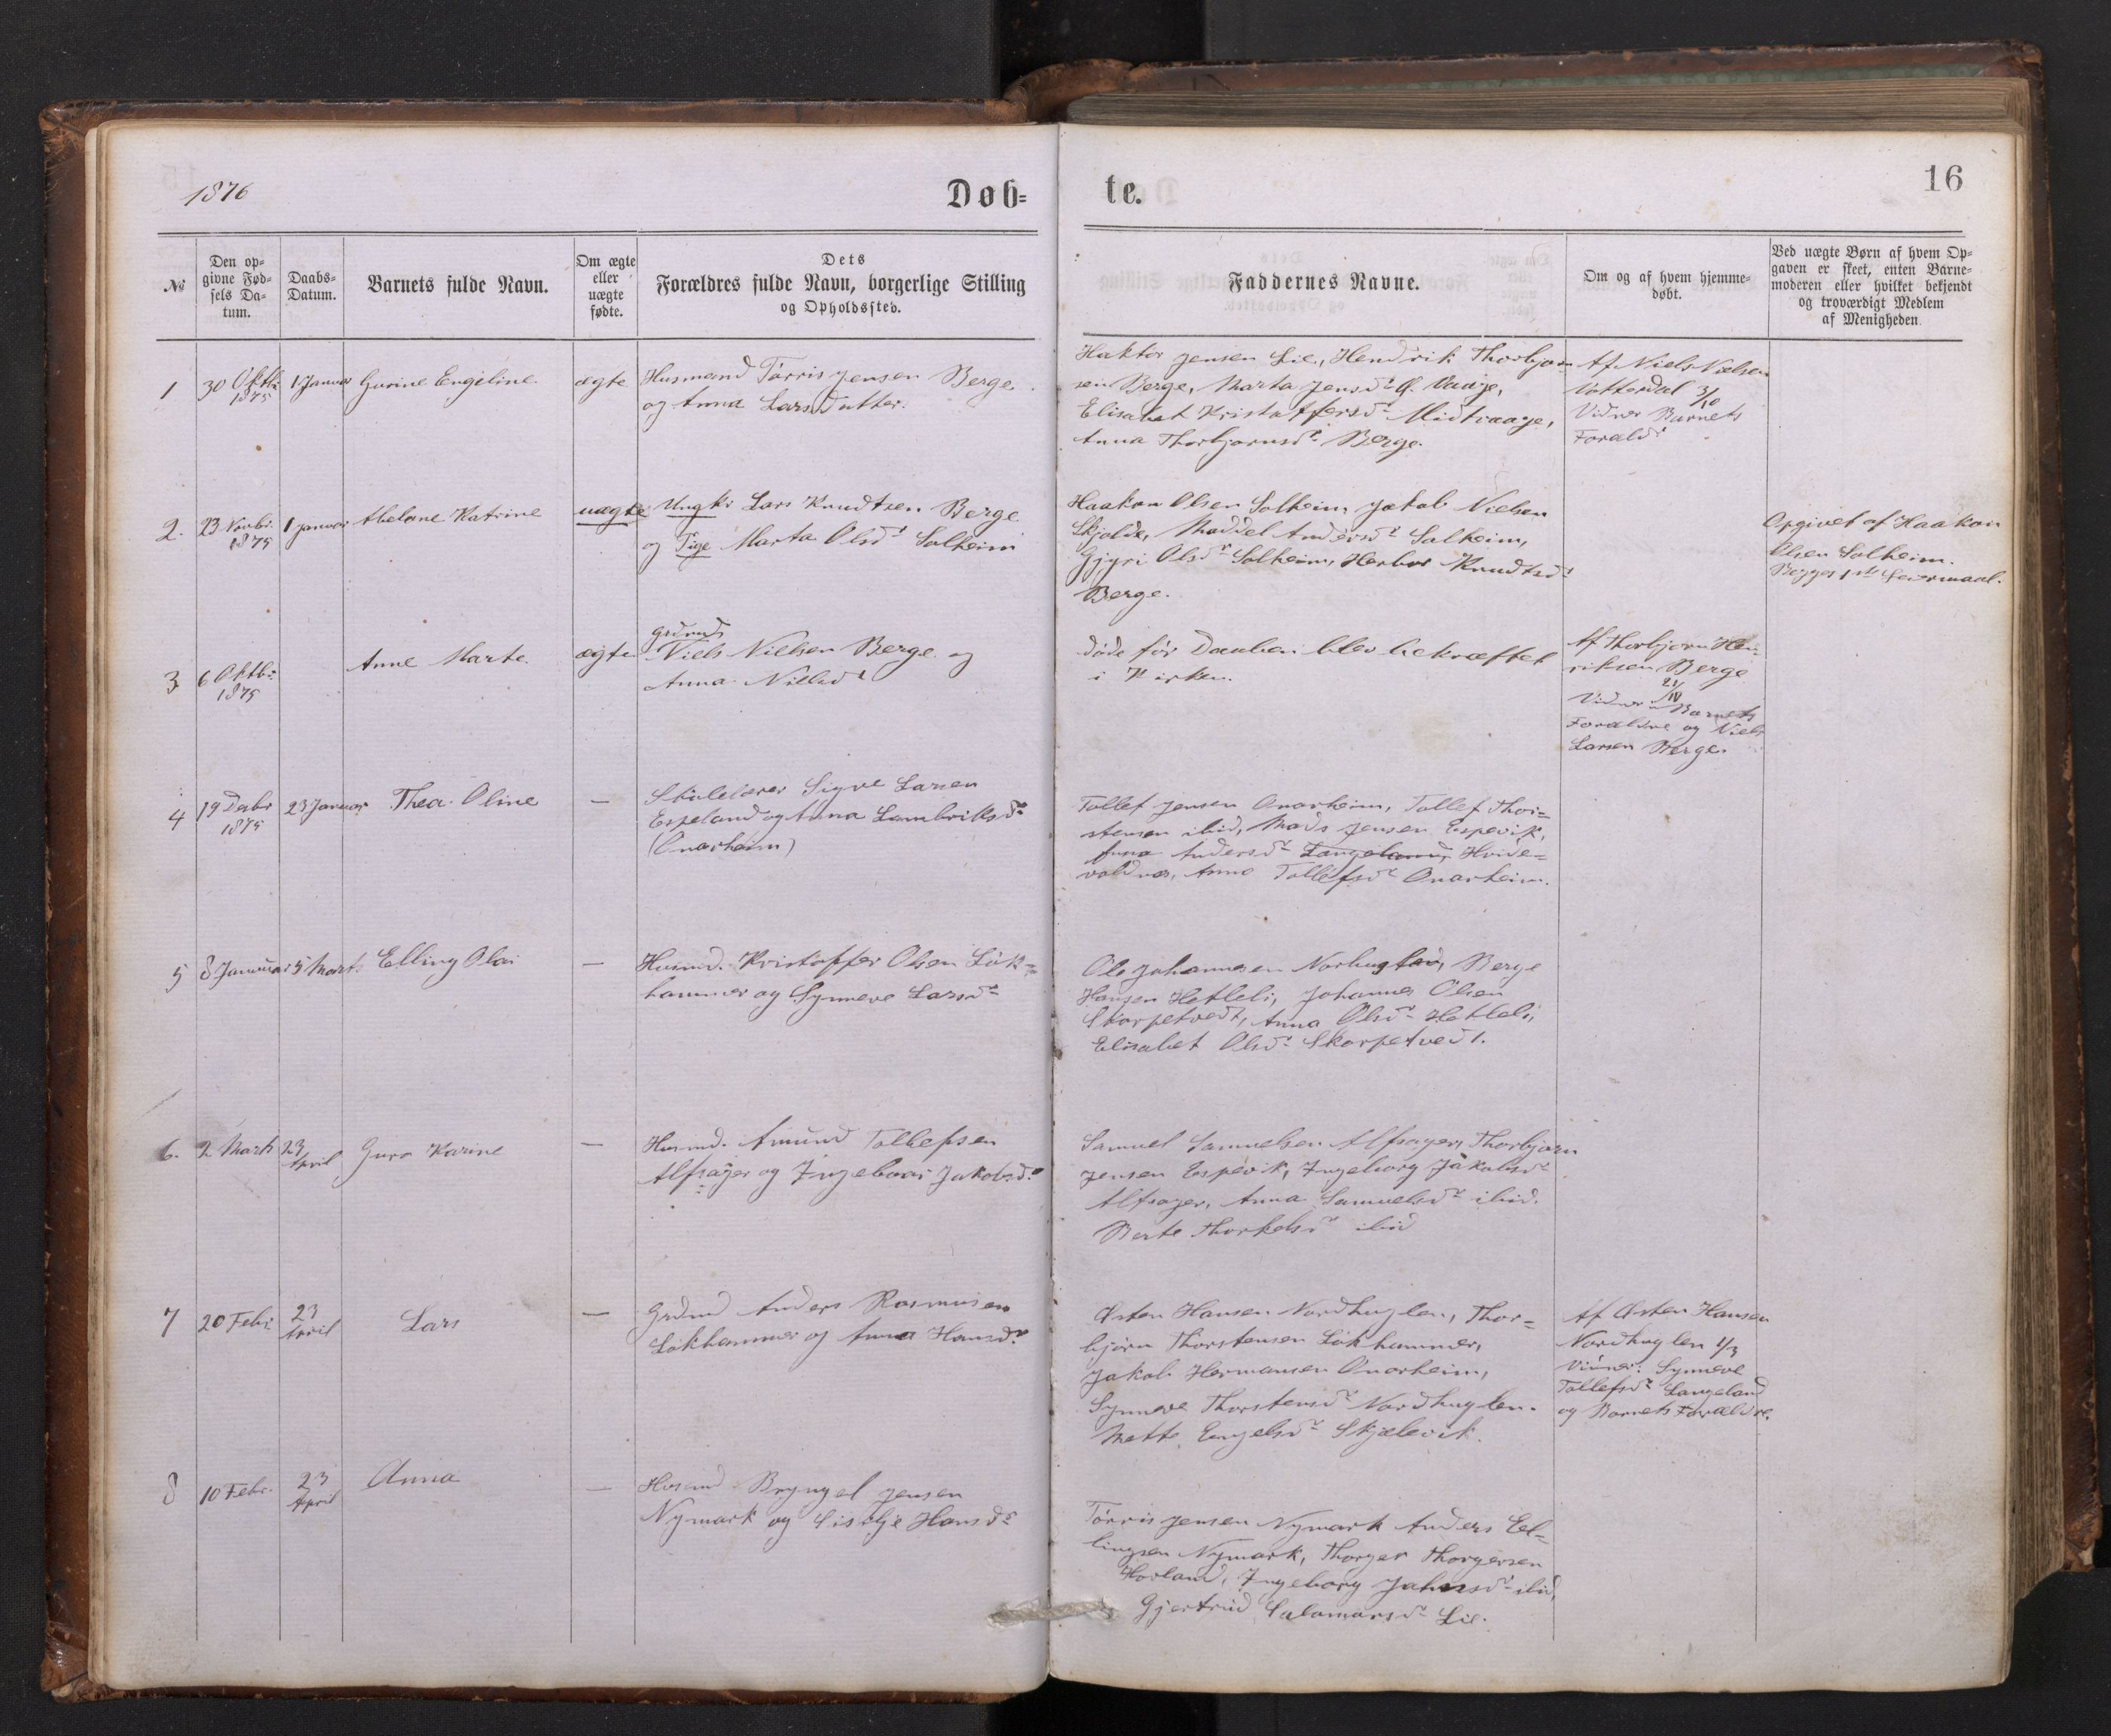 1876
Døb=
te.
16
№
Den op=
givne Fød=
sels Da=
tum.
Daabs=
Datum.
Barnets fulde Navn.
Om ægte
eller
uægte
fødte.
Dets
Forældres fulde Navn, borgerlige Stilling
og Opholdssted.
Faddernes Navne.
Om og af hvem hjemme=
døbt.
Ved uægte Børn af hvem Op=
gaven er skeet, enten Barne=
moderen eller hvilket bekjendt
og troværdigt Medlem
af Menigheden.
1
30 Oktbr
1875
1 Januar
Gurine Engeline.
ægte
Husmand Tørris Jensen Berge
og Anna Larsdatter.
Jensen Lie, Hendrik Thorbjørn
sen Berge, Marta Jensdr Ø. Vaage,
Elisabet Kristaffersdr Midtvaage,
Anna Thorbjørnsdr Berge.
Af Niels Nielsen
Vatterdal 3/10
Vidner Barnets
Foræld
2.
23 Novbr.
1875
1 Januar
Abelone Katrine
uægte
Ungkr Lars Knudtsen Berge
og Pige Marta Olsdr Solheim
Haakon Olsen Solheim, Jakob Nielsen
Skjolde, Maddel Andersdr Solheim,
Gjyri Olsdr Solheim, Herbor Knudtsdr
Berge.
Opgivet af Haakon
Olsen Solheim.
Begges 1ste Leiermaal.
3
6 Oktbr
1875
Anne Marte.
ægte
Grdmd
Niels Nielsen Berge og
Anna Nielsdr
Døde før Daaben blev bekræftet
i Kirken.
Af Thorbjørn Hen
riksen Berge
21/10
Vidner Barnets
Forældre og Niels
Larsen Berge.
4
19 Decbr
1875
23 Januar
Thea Oline
—
Skolelærer Sigve Larsen
Espeland og Anna Lambriksdr
(Onarheim)
Tollef Jensen Onarheim, Tollef Thor=
stensen ibid, Mads Jensen Espevik,
Anna Andersdr Langeland, Hvide=
voldnes, Anne Tollefsdr Onarheim.
5
8 Januar
5 Marts
Elling Olai
—
Husmd. Kristoffer Olsen Løk=
hammer og Synneve Larsdr
Ole Johannesen Norhuglen, Berge
Hansen Hetleli, Johannes Olsen
Skorpetvedt, Anna Olsdr Hetleli,
Elisabet Olsdr Skorpetvedt.
6.
2 Marts
23
April
Guro Karine
—
Husmd. Amund Tollefsen
Alfsager og Ingeboar Jakobsdr
Samuel Samuelsen Alfsager, Thorbjørn
Jensen Espevik, Ingeborg Jakobsdr
Alfsager, Anna Samuelsdr ibid.
Berte Thorkelsdr ibid
7
20 Febr
23
April
Lars
—
Grdmd Anders Rasmusen
Løkhammer og Anna Hansdr
Østen Hansen Nordhuglen, Thor=
bjørn Thorstensen Løkhammer,
Jakob Hermansen Onarheim,
Synneve Thorstensdr Nordhuglen.
Mette Engelsdr Skjælevik.
Af Østen Hansen
Nordhuglen 1/3
Vidner: Synneve
Tollefsdr Langeland
og Barnets Forældre.
8
10 Febr.
23
April
Anna
—
Husmd Bryngel Jensen
Nymark og Hansdr
Tørris Jensen Nymark Anders El=
lingsen Nymark, Thorger Thorgersen
Hovland, Ingeborg ibid,
Gjertrud Salamonsdr Lie.